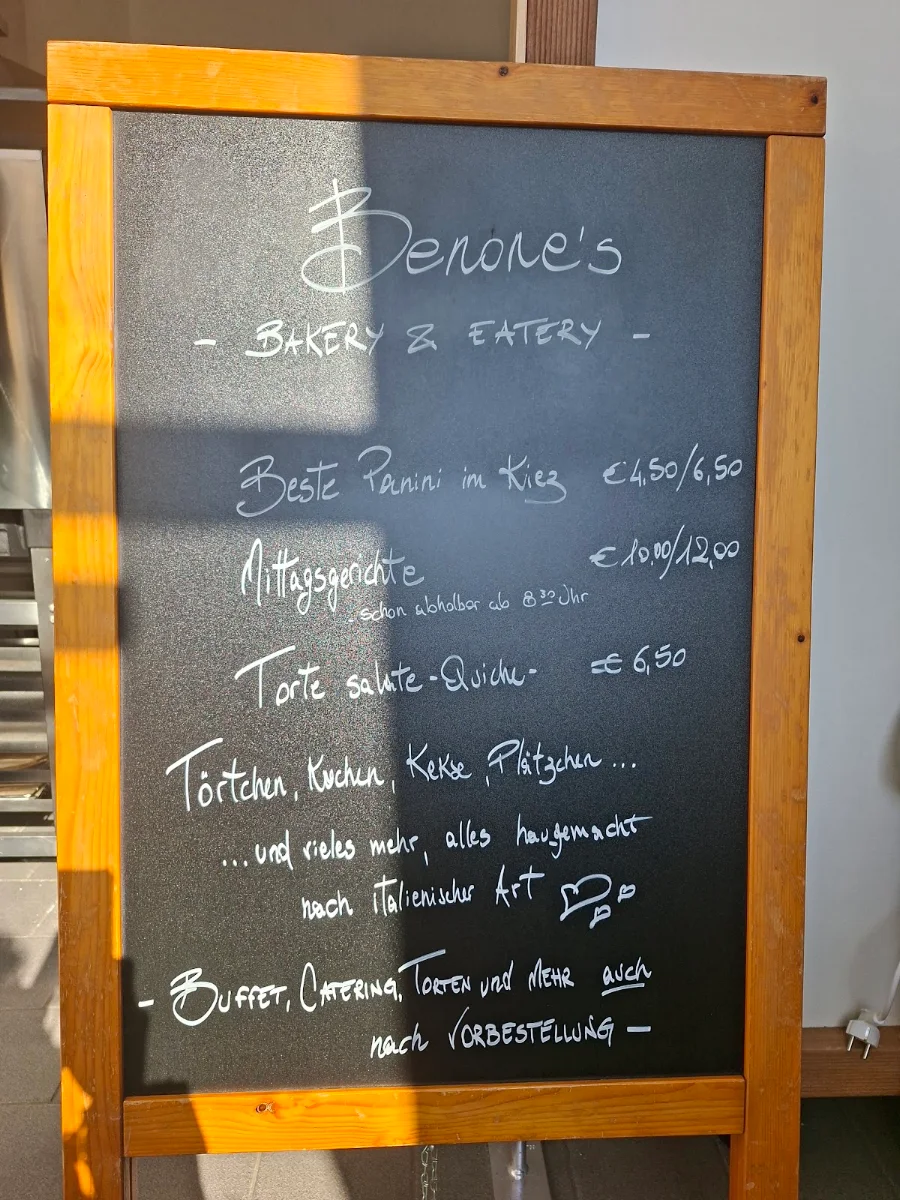 Benone's
- BAKERY & EATERY -
Beste Panini im Kiez €4,50/6,50
Mittagsgerichte €10,00/12,00
- schon abholbar ab 8³⁰ Uhr
Torte salate -Quiche- € 6,50
Törtchen, Kuchen, Kekse, Plätzchen ...
... und vieles mehr, alles hausgemacht
nach italienischer Art
- BUFFET, CATERING, TORTEN und MEHR auch
nach VORBESTELLUNG -